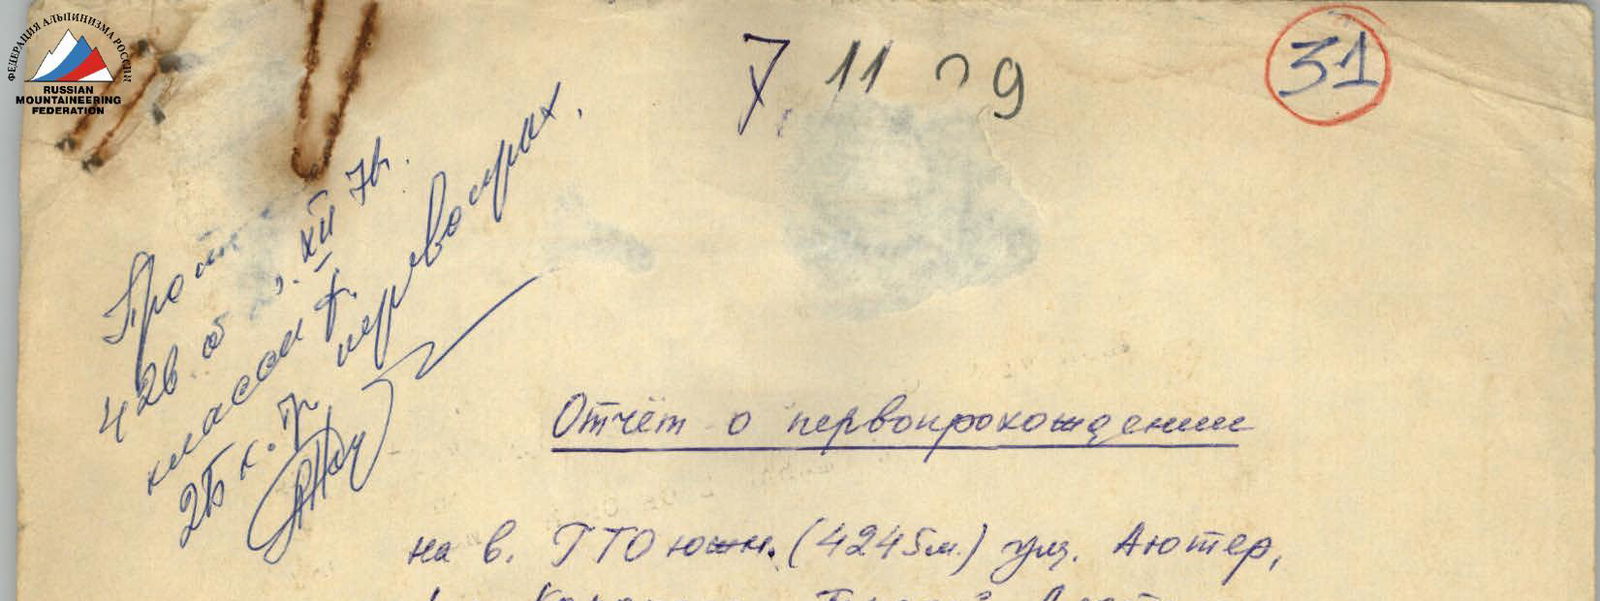 ФЕДЕРАЦИЯ АЛЬПИНИЗМА РОССИИ
RUSSIAN
MOUNTAINEERING
FEDERATION
7. 11 09
31
Прот
428 от XII 76.
классиф.
2Б к. тр. первопрох.
Отчёт о первопрохождении
на в. ГТО южн. (4245м.) ущ. Аютер,